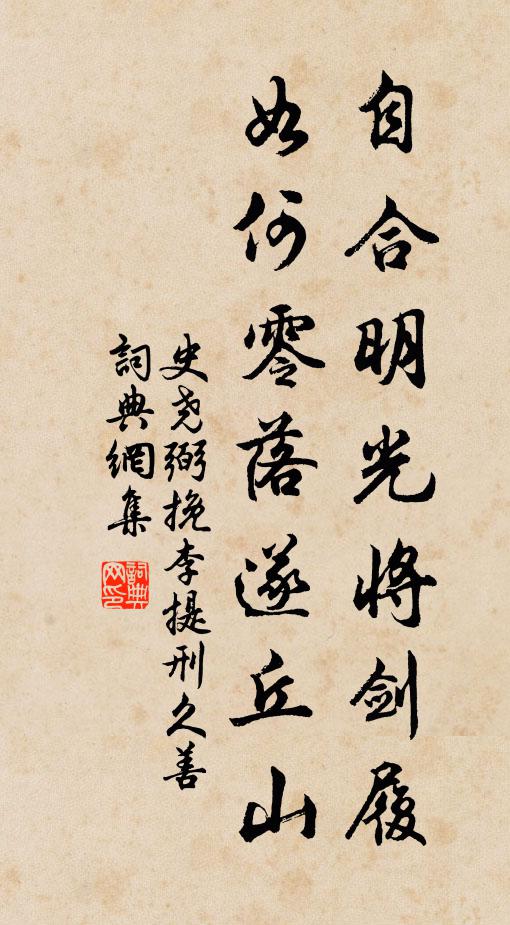 自合明光將劍履
如何零落遂丘山
史尧弼挽李提刑久善
詞典網集
詞典网印